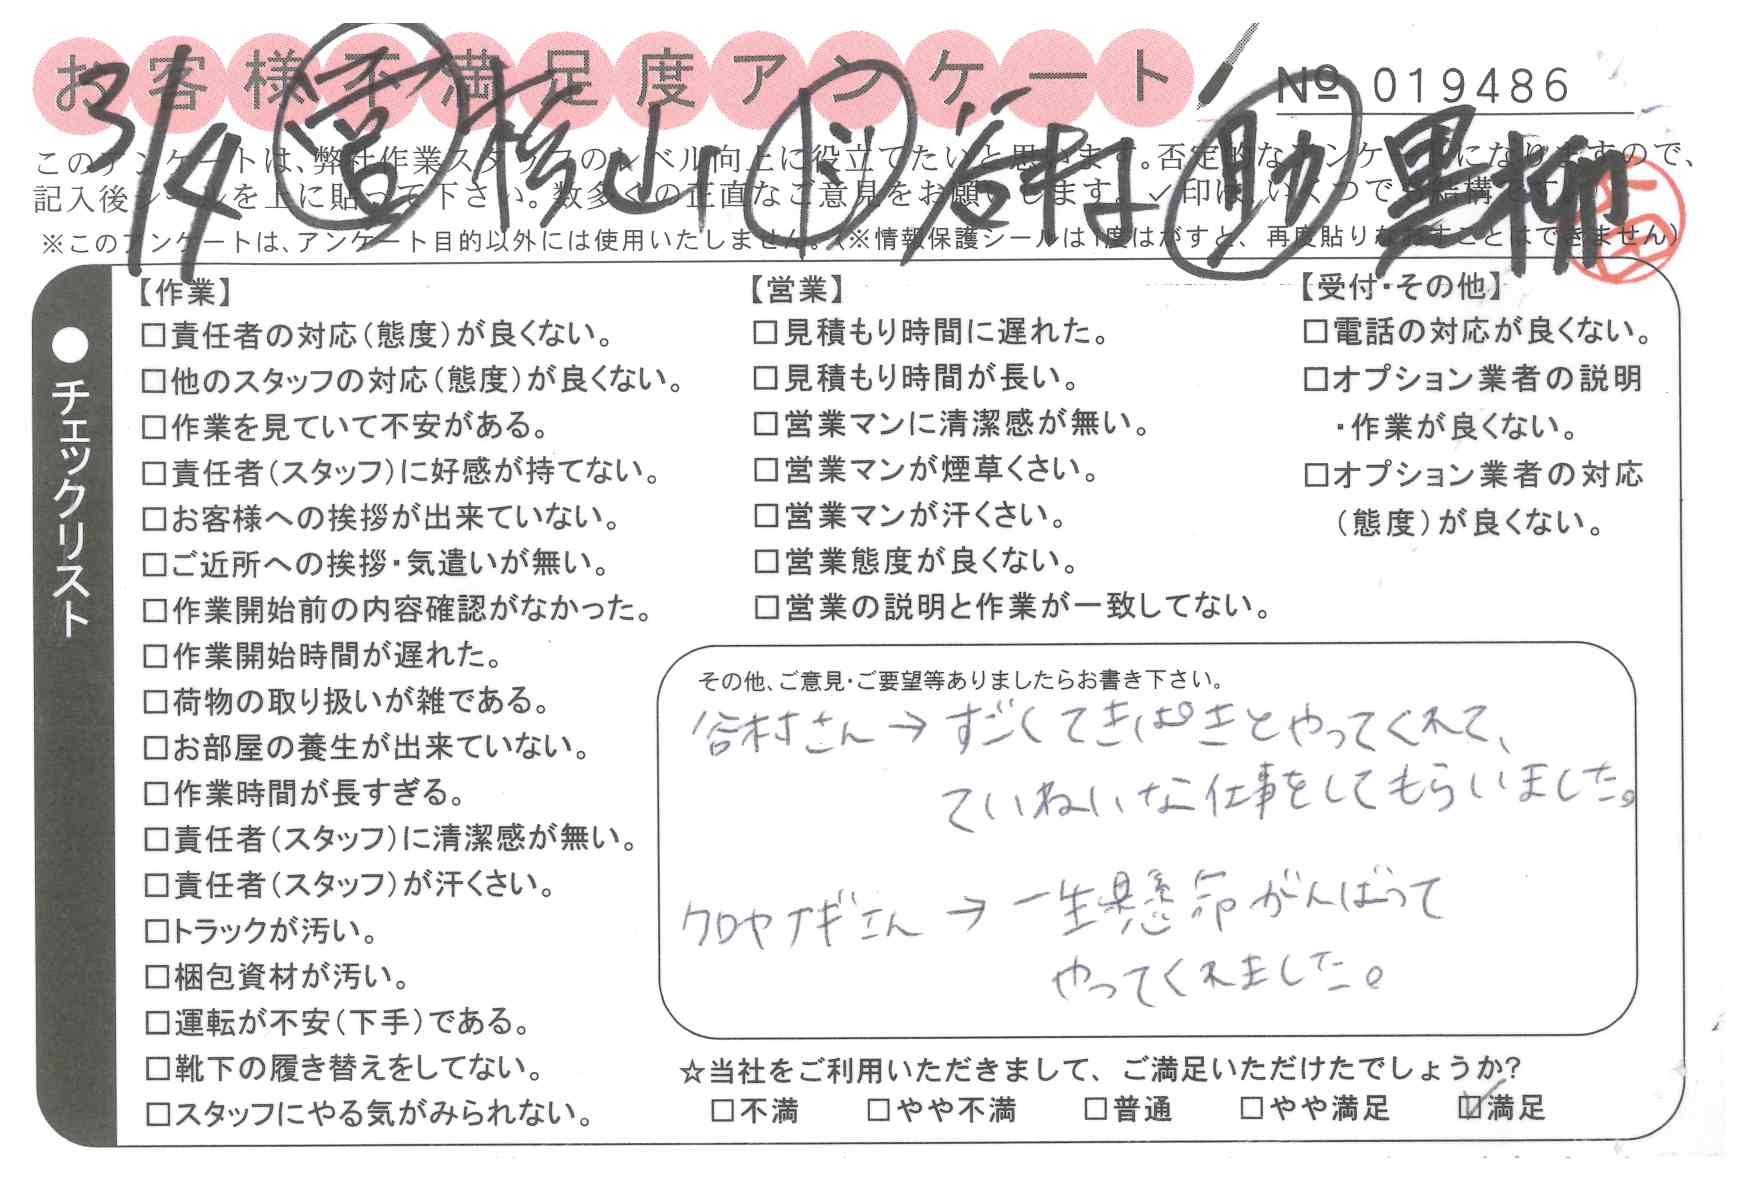 お客様不満足度アンケート
№ 019486
3/4 営 杉山 ド 谷村 助 黒柳
このアンケートは、弊社作業スタッフのレベル向上に役立てたいと思います。否定的なアンケートになりますので、
記入後シールを上に貼って下さい。数多くの正直なご意見をお願いします。✓印は、いくつでも結構です。
※このアンケートは、アンケート目的以外には使用いたしません。(※情報保護シールは1度はがすと、再度貼りなおすことはできません)
●チェックリスト
【作業】
□責任者の対応(態度)が良くない。
□他のスタッフの対応(態度)が良くない。
□作業を見ていて不安がある。
□責任者(スタッフ)に好感が持てない。
□お客様への挨拶が出来ていない。
□ご近所への挨拶・気遣いが無い。
□作業開始前の内容確認がなかった。
□作業開始時間が遅れた。
□荷物の取り扱いが雑である。
□お部屋の養生が出来ていない。
□作業時間が長すぎる。
□責任者(スタッフ)に清潔感が無い。
□責任者(スタッフ)が汗くさい。
□トラックが汚い。
□梱包資材が汚い。
□運転が不安(下手)である。
□靴下の履き替えをしてない。
□スタッフにやる気がみられない。
【営業】
□見積もり時間に遅れた。
□見積もり時間が長い。
□営業マンに清潔感が無い。
□営業マンが煙草くさい。
□営業マンが汗くさい。
□営業態度が良くない。
□営業の説明と作業が一致してない。
【受付・その他】
□電話の対応が良くない。
□オプション業者の説明
・作業が良くない。
□オプション業者の対応
(態度)が良くない。
その他、ご意見・ご要望等ありましたらお書き下さい。
谷村さん→すごくてきぱきとやってくれて、
ていねいな仕事をしてもらいました。
クロヤナギさん→一生懸命がんばって
やってくれました。
☆当社をご利用いただきまして、ご満足いただけたでしょうか?
□不満 □やや不満 □普通 □やや満足 ☑満足